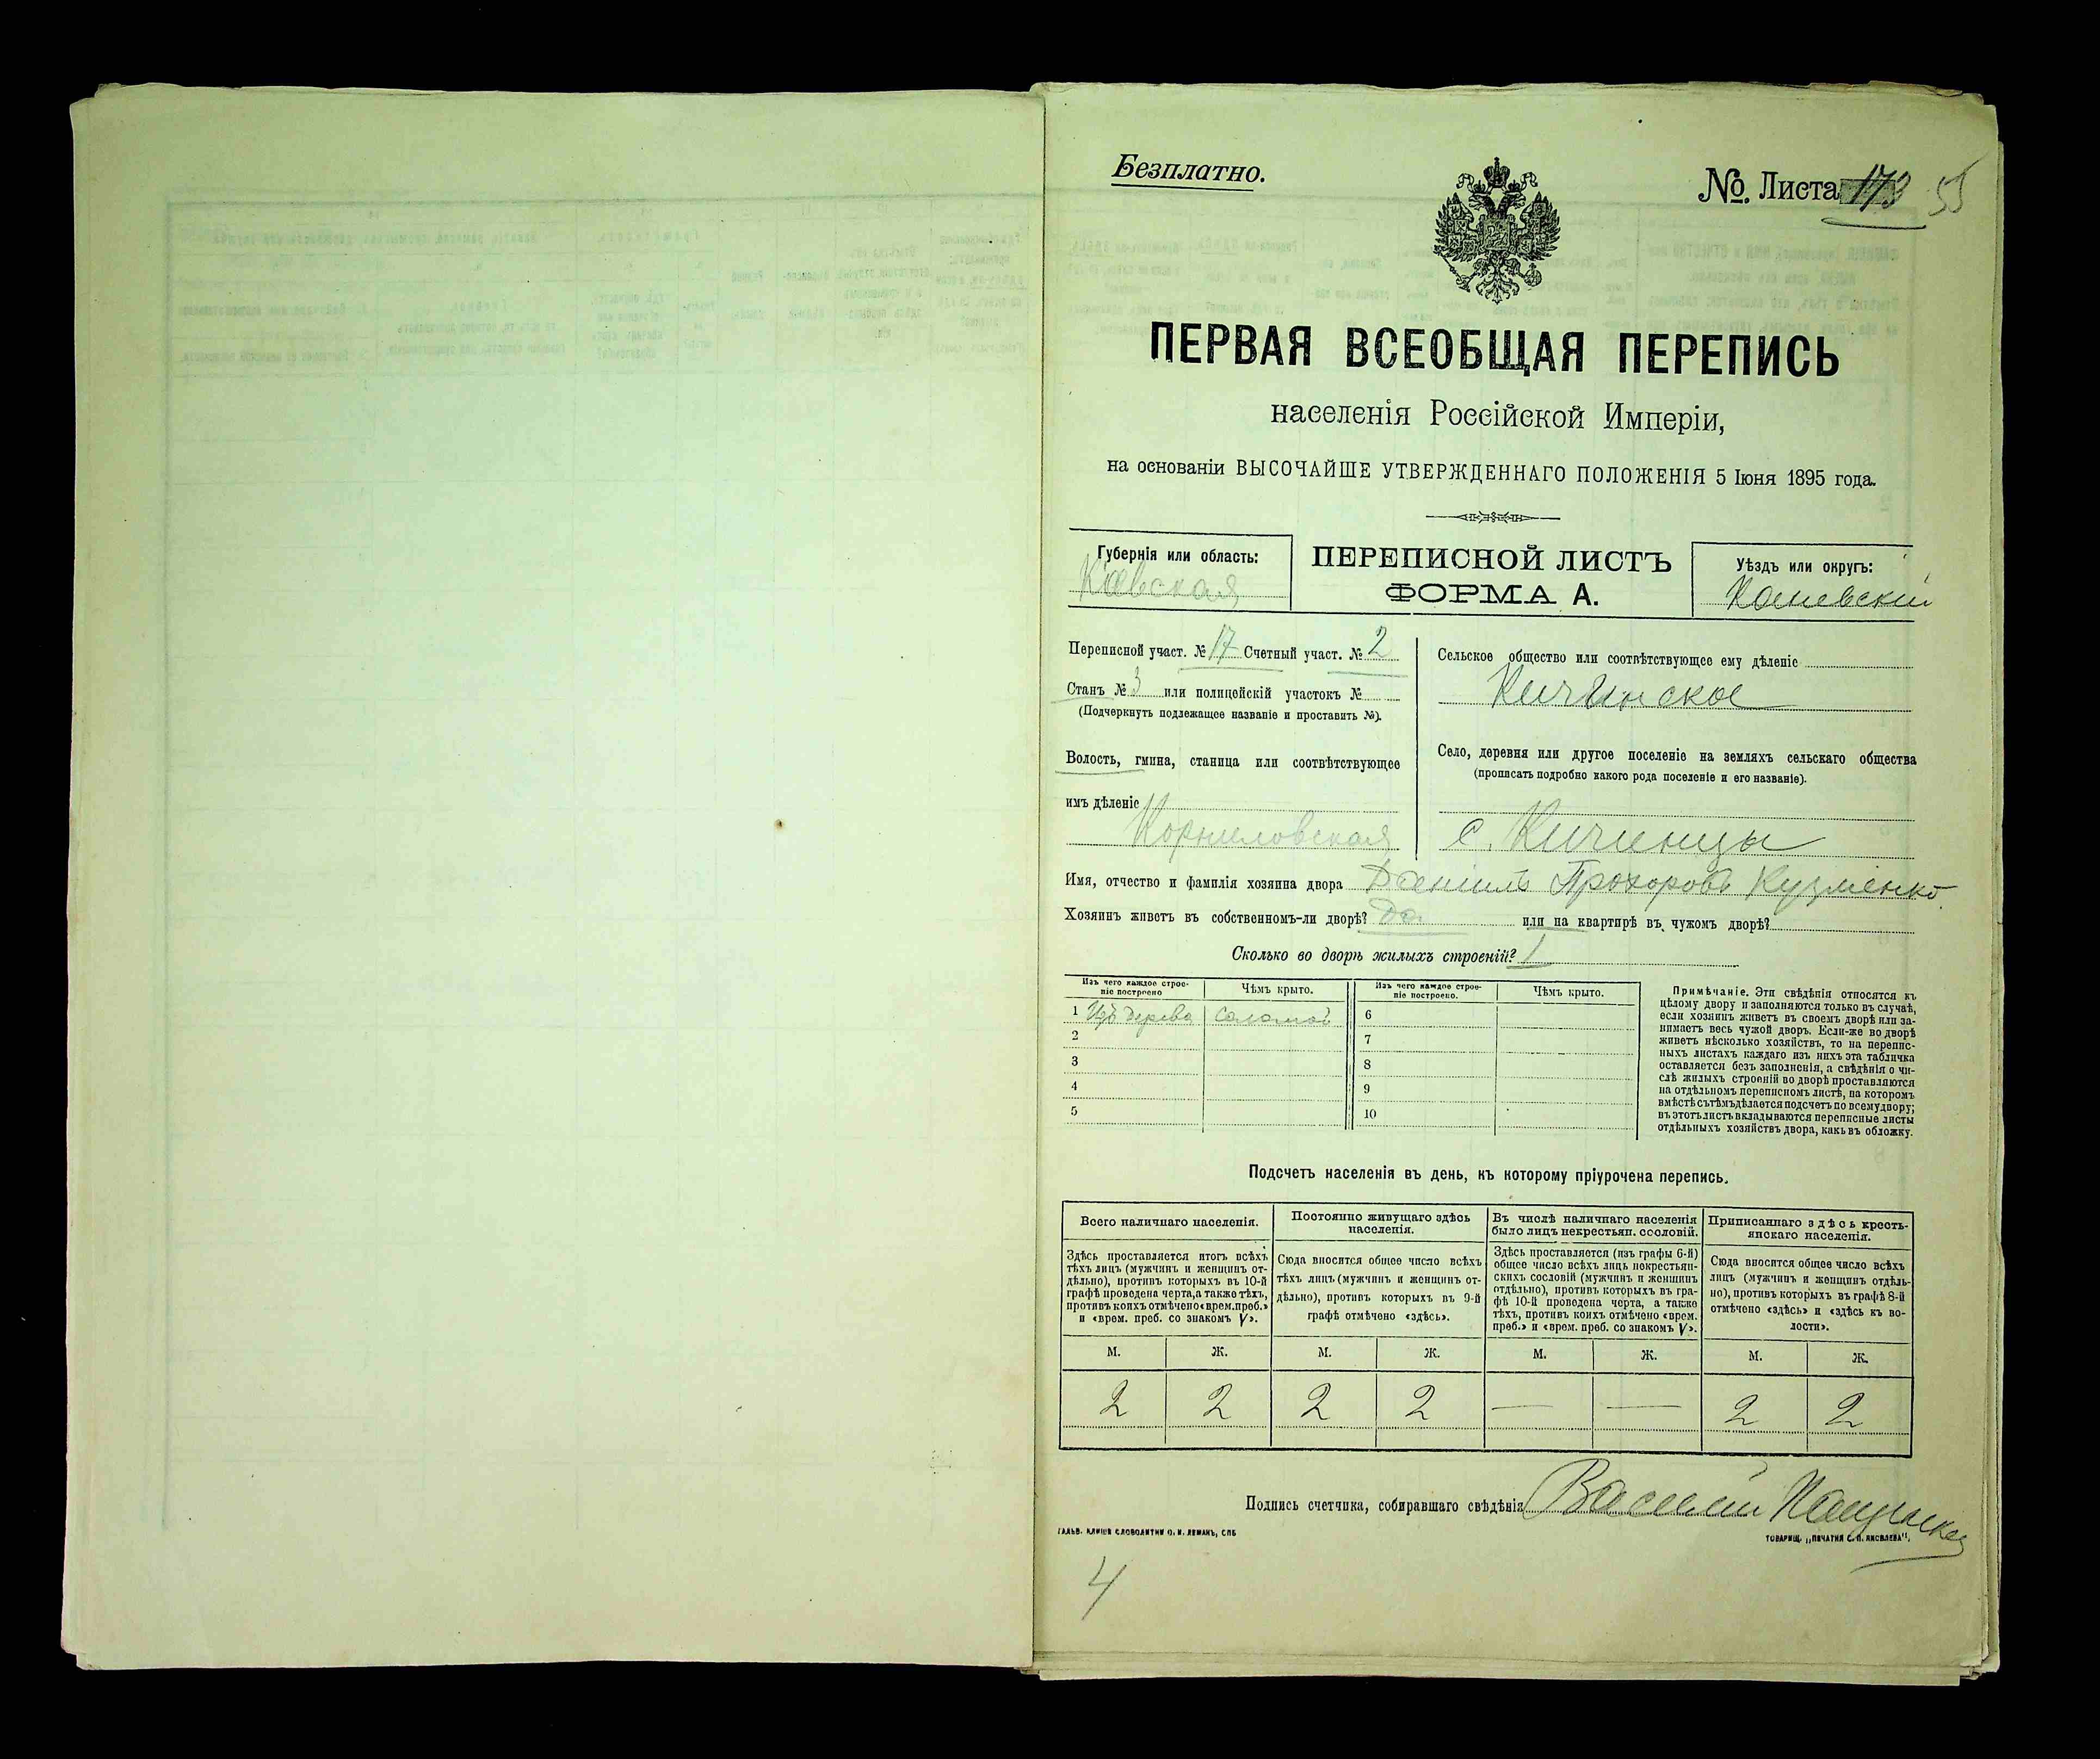 Безплатно.
№ Листа 173 55
ПЕРВАЯ ВСЕОБЩАЯ ПЕРЕПИСЬ
населенія Россійской Имперіи,
на основаніи ВЫСОЧАЙШЕ УТВЕРЖДЕННАГО ПОЛОЖЕНІЯ 5 Іюня 1895 года.
Губернія или область:
Кіевская
ПЕРЕПИСНОЙ ЛИСТЪ
ФОРМА А.
Уѣздъ или округъ:
Каневскій
Переписной участ. № 17 Счетный участ. № 2
Станъ № 3 или полицейскій участокъ №
(Подчеркнуть подлежащее названіе и проставить №).
Волость, гмина, станица или соотвѣтствующее
имъ дѣленіе
Корниловская
Сельское общество или соотвѣтствующее ему дѣленіе
Кичинское
Село, деревня или другое поселеніе на земляхъ сельскаго общества
(прописать подробно какого рода поселеніе и его названіе).
с. Киченцы
Имя, отчество и фамилія хозяина двора Даніилъ Прохоровъ Кузменко
Хозяинъ живетъ въ собственномъ-ли дворѣ? Да или на квартирѣ въ чужомъ дворѣ?
Сколько во дворѣ жилыхъ строеній? 1
Изъ чего каждое строе-
ніе построено
Чѣмъ крыто.
Изъ чего каждое строе-
ніе построено.
Чѣмъ крыто.
1 Изъ дерева Соломой 6
2 7
3 8
4 9
5 10
Примѣчаніе. Эти свѣдѣнія относятся къ
цѣлому двору и заполняются только въ случаѣ,
если хозяинъ живетъ въ своемъ дворѣ или за-
нимаетъ весь чужой дворъ. Если-же во дворѣ
живетъ нѣсколько хозяйствъ, то на перепис-
ныхъ листахъ каждаго изъ нихъ эта табличка
оставляется безъ заполненія, а свѣдѣнія о чи-
слѣ жилыхъ строеній во дворѣ проставляются
на отдѣльномъ переписномъ листѣ, на которомъ
вмѣстѣ съ тѣмъ дѣлается подсчетъ по всему двору;
въ этотъ листъ вкладываются переписные листы
отдѣльныхъ хозяйствъ двора, какъ въ обложку.
Подсчетъ населенія въ день, къ которому пріурочена перепись.
Всего наличнаго населенія.
Здѣсь проставляется итогъ всѣхъ
тѣхъ лицъ (мужчинъ и женщинъ от-
дѣльно), противъ которыхъ въ 10-й
графѣ проведена черта, а также тѣхъ,
противъ коихъ отмѣчено «врем. преб.»
и «врем. преб. со знакомъ V».
Постоянно живущаго здѣсь
населенія.
Сюда вносится общее число всѣхъ
тѣхъ лицъ (мужчинъ и женщинъ от-
дѣльно), противъ которыхъ въ 9-й
графѣ отмѣчено «здѣсь».
Въ числѣ наличнаго населенія
было лицъ некрестьян. сословій.
Здѣсь проставляется (изъ графы 6-й)
общее число всѣхъ лицъ некрестьян-
скихъ сословій (мужчинъ и женщинъ
отдѣльно), противъ которыхъ въ гра-
фѣ 10-й проведена черта, а также
тѣхъ, противъ коихъ отмѣчено «врем.
преб.» и «врем. преб. со знакомъ V».
Приписаннаго здѣсь кресть-
янскаго населенія.
Сюда вносится общее число всѣхъ
лицъ (мужчинъ и женщинъ отдѣль-
но), противъ которыхъ въ графѣ 8-й
отмѣчено «здѣсь» и «здѣсь къ во-
лости».
М. Ж. М. Ж. М. Ж. М. Ж.
2 2 2 2 — — 2 2
Подпись счетчика, собиравшаго свѣдѣнія Василій
ГАЛЬВ. КЛИШЕ СЛОВОЛИТНИ О. И. ЛЕМАНЪ, СПБ
ТОВАРИЩ. „ПЕЧАТНЯ С. П. ЯКОВЛЕВА",
4